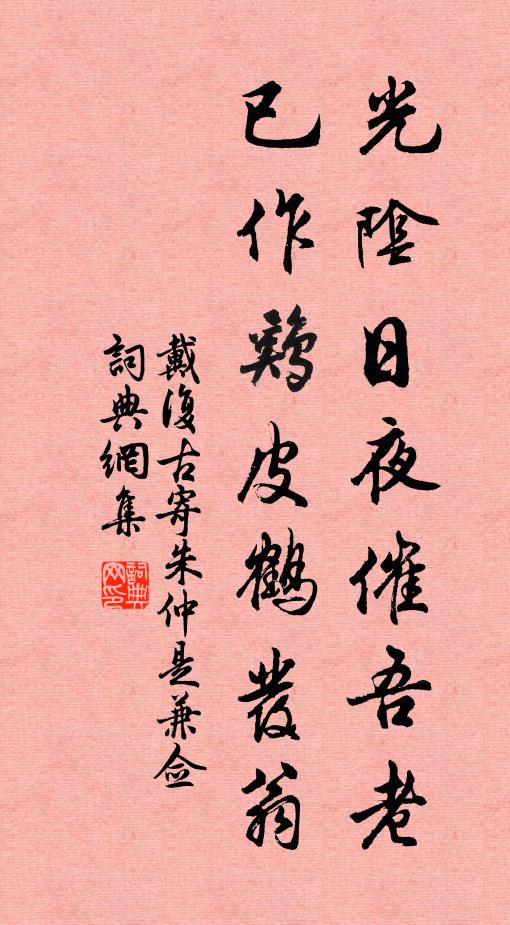 光陰日夜催吾老
已作鷄皮鶴發翁
戴復古寄朱仲是兼僉
詞典網集
詞典网印